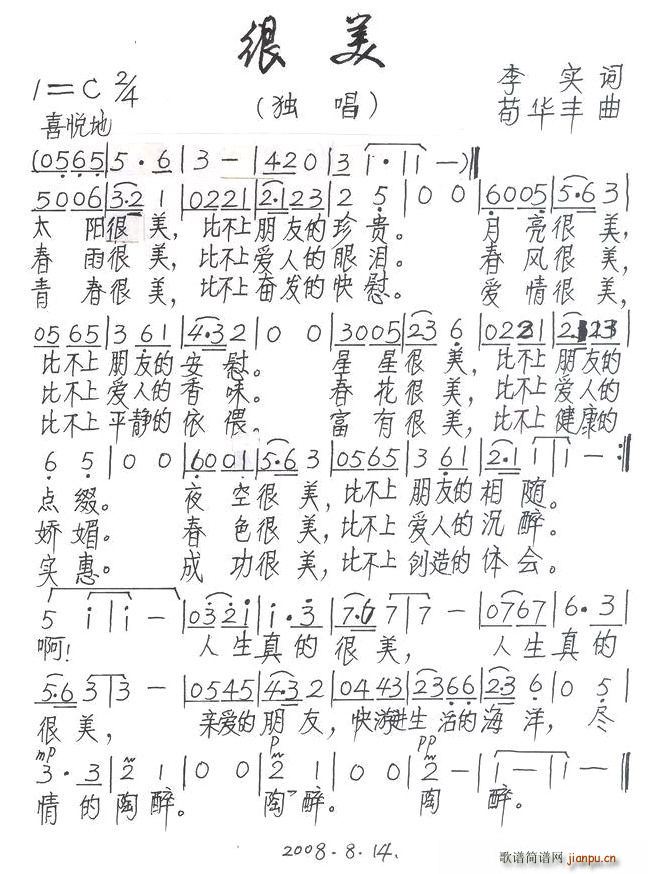 很美
1=C 2/4
李实词
(独唱)
荀华丰曲
喜悦地
(0565|5·6|3-|4·20|3 1·|11|1-)‖
5006|3·21|0221|2·123|2 5|0 0|6005|5·63|
太阳很美，比不上朋友的珍贵。月亮很美，
春雨很美，比不上爱人的眼泪。春风很美，
青春很美，比不上奋发的快慰。爱情很美，
0565|3 61|4·32|0 0|3005|23 6|0221|2·123|
比不上朋友的安慰。星星很美，比不上朋友的
比不上爱人的香味。春花很美，比不上爱人的
比不上平静的依偎。富有很美，比不上健康的
6 5|0 0|6001|5·63|0565|3 61|2·11|1-:‖
点缀。夜空很美，比不上朋友的相随。
娇媚。春色很美，比不上爱人的沉醉。
实惠。成功很美，比不上创造的体会。
5 i|i-|0321|i·3|7·67|7-|0767|6·3|
啊！人生真的很美，人生真的
5·63|3-|0545|4·32|0443|2366|2·36|0 5|
很美，亲爱的朋友，快游进生活的海洋，尽
mp p pp
3·3|2 1|0 0|2 1|0 0|2-|1-|1-‖
情的陶醉。陶醉。陶醉。
2008.8.14.
歌谱简谱网
jianpu.cn